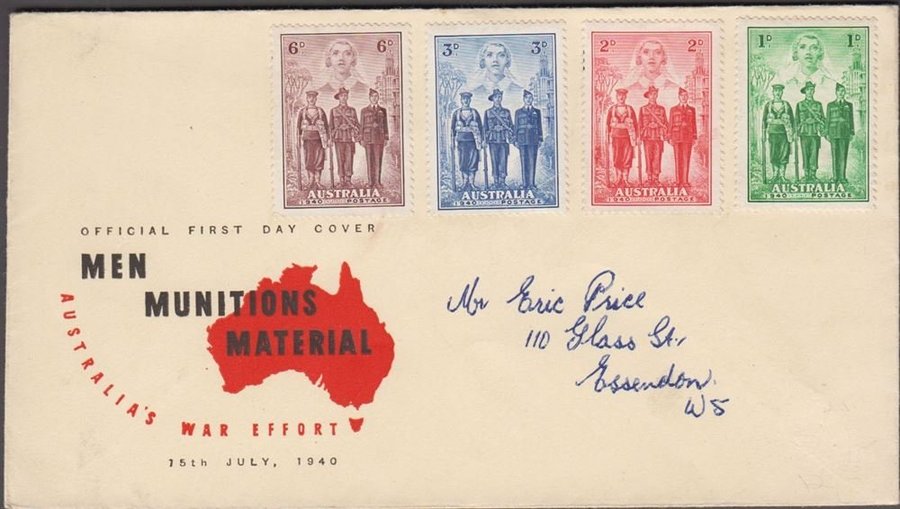 6D 6D
AUSTRALIA
1940 POSTAGE
3D 3D
AUSTRALIA
1940 POSTAGE
2D 2D
AUSTRALIA
1940 POSTAGE
1D 1D
AUSTRALIA
1940 POSTAGE
OFFICIAL FIRST DAY COVER
MEN
MUNITIONS
MATERIAL
AUSTRALIA'S WAR EFFORT
15th JULY, 1940
Mr Eric Price
110 Glass St.,
Essendon.
W5